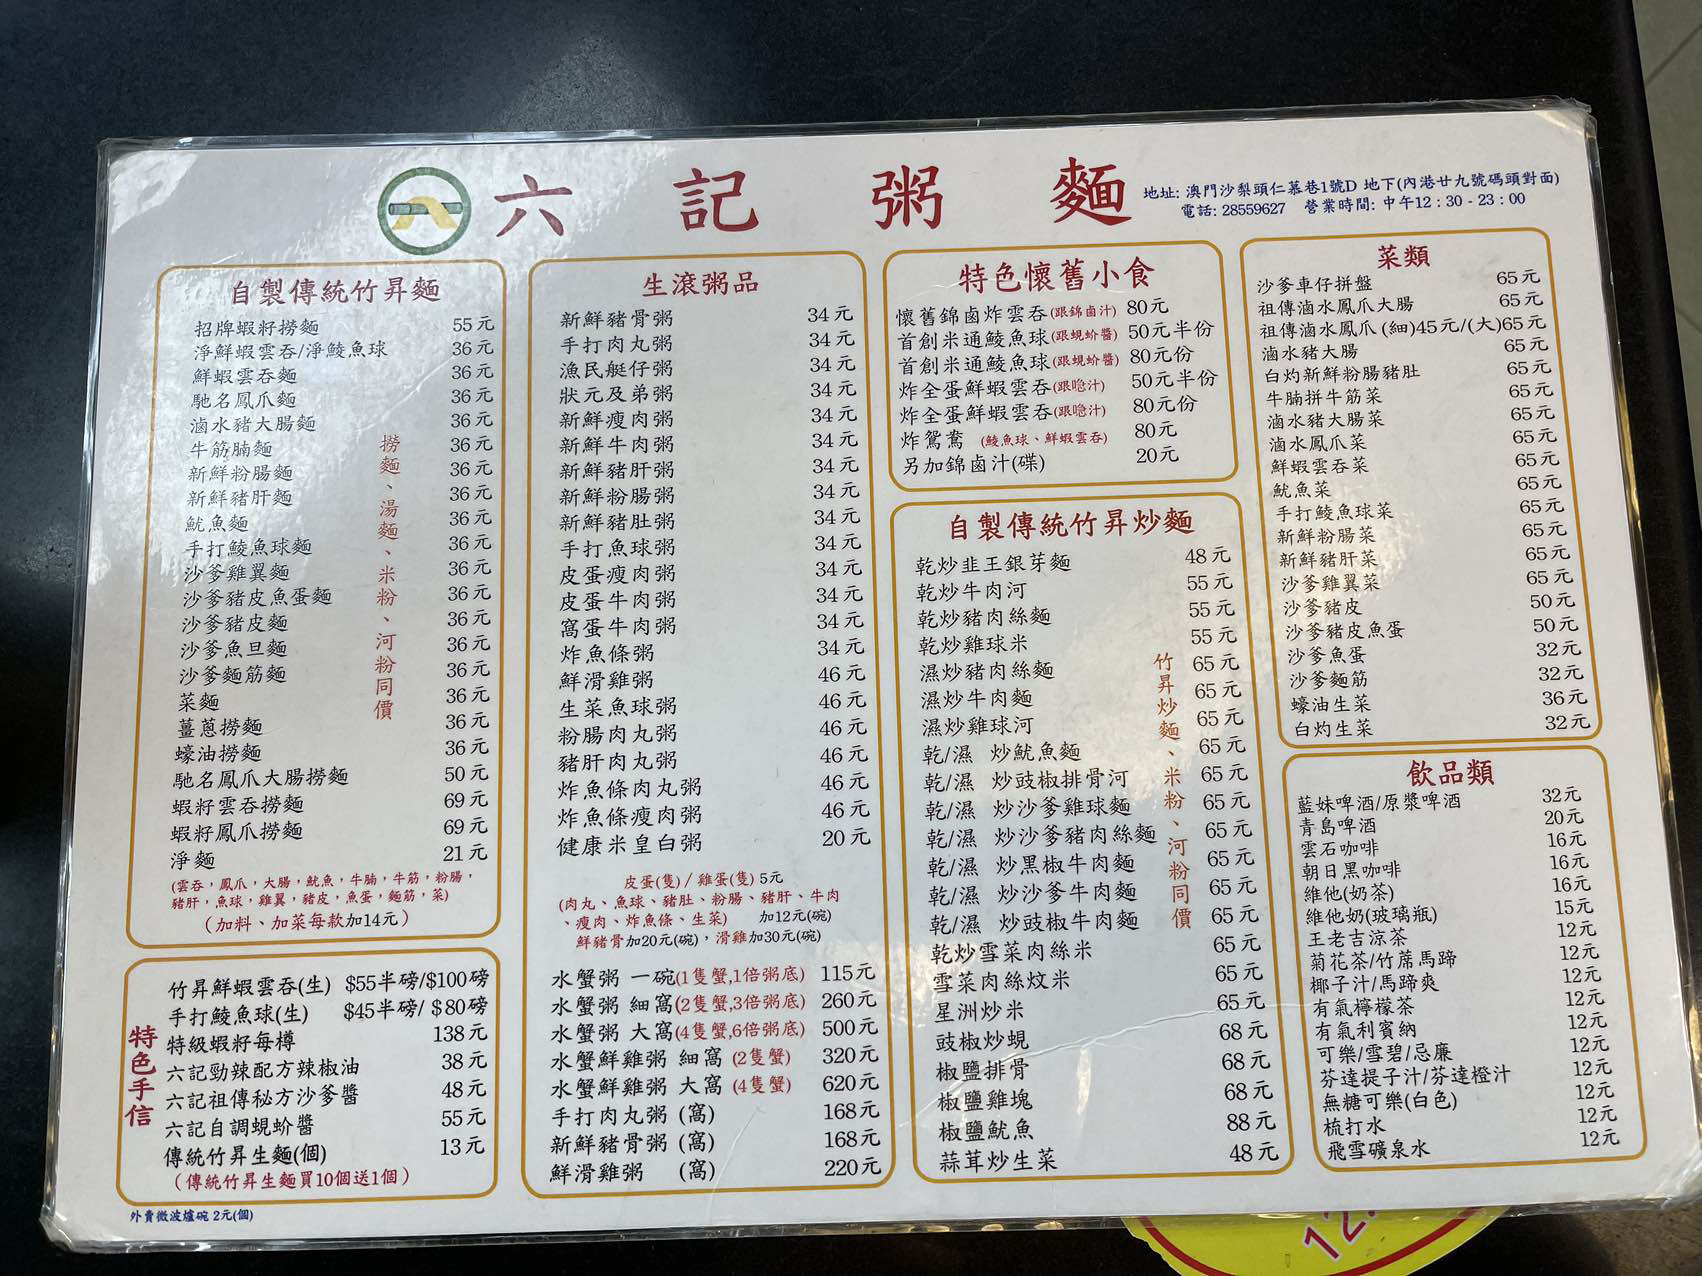 六記粥麵
地址: 澳門沙梨頭仁慕巷1號D 地下(內港廿九號碼頭對面)
電話: 28559627 營業時間: 中午12:30 - 23:00
自製傳統竹昇麵
招牌蝦籽撈麵 55元
淨鮮蝦雲吞/淨鯪魚球 36元
鮮蝦雲吞麵 36元
馳名鳳爪麵 36元
滷水豬大腸麵 36元
牛筋腩麵 36元
新鮮粉腸麵 36元
新鮮豬肝麵 36元
魷魚麵 36元
手打鯪魚球麵 36元
沙爹雞翼麵 36元
沙爹豬皮魚蛋麵 36元
沙爹豬皮麵 36元
沙爹魚旦麵 36元
沙爹麵筋麵 36元
菜麵 36元
薑蔥撈麵 36元
蠔油撈麵 36元
馳名鳳爪大腸撈麵 50元
蝦籽雲吞撈麵 69元
蝦籽鳳爪撈麵 69元
淨麵 21元
撈麵、湯麵、米粉、河粉同價
(雲吞，鳳爪，大腸，魷魚，牛腩，牛筋，粉腸，
豬肝，魚球，雞翼，豬皮，魚蛋，麵筋，菜)
(加料、加菜每款加14元)
特色手信
竹昇鮮蝦雲吞(生) $55半磅/$100磅
手打鯪魚球(生) $45半磅/ $80磅
特級蝦籽每樽 138元
六記勁辣配方辣椒油 38元
六記祖傳秘方沙爹醬 48元
六記自調蜆蚧醬 55元
傳統竹昇生麵(個) 13元
(傳統竹昇生麵買10個送1個)
外賣微波爐碗 2元(個)
生滾粥品
新鮮豬骨粥 34元
手打肉丸粥 34元
漁民艇仔粥 34元
狀元及弟粥 34元
新鮮瘦肉粥 34元
新鮮牛肉粥 34元
新鮮豬肝粥 34元
新鮮粉腸粥 34元
新鮮豬肚粥 34元
手打魚球粥 34元
皮蛋瘦肉粥 34元
皮蛋牛肉粥 34元
窩蛋牛肉粥 34元
炸魚條粥 34元
鮮滑雞粥 46元
生菜魚球粥 46元
粉腸肉丸粥 46元
豬肝肉丸粥 46元
炸魚條肉丸粥 46元
炸魚條瘦肉粥 46元
健康米皇白粥 20元
皮蛋(隻)/ 雞蛋(隻) 5元
(肉丸、魚球、豬肚、粉腸、豬肝、牛肉
、瘦肉、炸魚條、生菜) 加12元(碗)
鮮豬骨加20元(碗)，滑雞加30元(碗)
水蟹粥 一碗(1隻蟹,1倍粥底) 115元
水蟹粥 細窩(2隻蟹,3倍粥底) 260元
水蟹粥 大窩(4隻蟹,6倍粥底) 500元
水蟹鮮雞粥 細窩 (2隻蟹) 320元
水蟹鮮雞粥 大窩 (4隻蟹) 620元
手打肉丸粥 (窩) 168元
新鮮豬骨粥 (窩) 168元
鮮滑雞粥 (窩) 220元
特色懷舊小食
懷舊錦鹵炸雲吞(跟錦鹵汁) 80元
首創米通鯪魚球(跟蜆蚧醬) 50元半份
首創米通鯪魚球(跟蜆蚧醬) 80元份
炸全蛋鮮蝦雲吞(跟喼汁) 50元半份
炸全蛋鮮蝦雲吞(跟喼汁) 80元份
炸鴛鴦 (鯪魚球、鮮蝦雲吞) 80元
另加錦鹵汁(碟) 20元
自製傳統竹昇炒麵
乾炒韭王銀芽麵 48元
乾炒牛肉河 55元
乾炒豬肉絲麵 55元
乾炒雞球米 55元
濕炒豬肉絲麵 65元
濕炒牛肉麵 65元
濕炒雞球河 65元
乾/濕 炒魷魚麵 65元
乾/濕 炒豉椒排骨河 65元
乾/濕 炒沙爹雞球麵 65元
乾/濕 炒沙爹豬肉絲麵 65元
乾/濕 炒黑椒牛肉麵 65元
乾/濕 炒沙爹牛肉麵 65元
乾/濕 炒豉椒牛肉麵 65元
乾炒雪菜肉絲米 65元
雪菜肉絲炆米 65元
星洲炒米 65元
豉椒炒蜆 68元
椒鹽排骨 68元
椒鹽雞塊 68元
椒鹽魷魚 88元
蒜茸炒生菜 48元
竹昇炒麵、米粉、河粉同價
菜類
沙爹車仔拼盤 65元
祖傳滷水鳳爪大腸 65元
祖傳滷水鳳爪 (細)45元/(大)65元
滷水豬大腸 65元
白灼新鮮粉腸豬肚 65元
牛腩拼牛筋菜 65元
滷水豬大腸菜 65元
滷水鳳爪菜 65元
鮮蝦雲吞菜 65元
魷魚菜 65元
手打鯪魚球菜 65元
新鮮粉腸菜 65元
新鮮豬肝菜 65元
沙爹雞翼菜 65元
沙爹豬皮 50元
沙爹豬皮魚蛋 50元
沙爹魚蛋 32元
沙爹麵筋 32元
蠔油生菜 36元
白灼生菜 32元
飲品類
藍妹啤酒/原漿啤酒 32元
青島啤酒 20元
雲石咖啡 16元
朝日黑咖啡 16元
維他(奶茶) 16元
維他奶(玻璃瓶) 15元
王老吉涼茶 12元
菊花茶/竹蔗馬蹄 12元
椰子汁/馬蹄爽 12元
有氣檸檬茶 12元
有氣利賓納 12元
可樂/雪碧/忌廉 12元
芬達提子汁/芬達橙汁 12元
無糖可樂(白色) 12元
梳打水 12元
飛雪礦泉水 12元